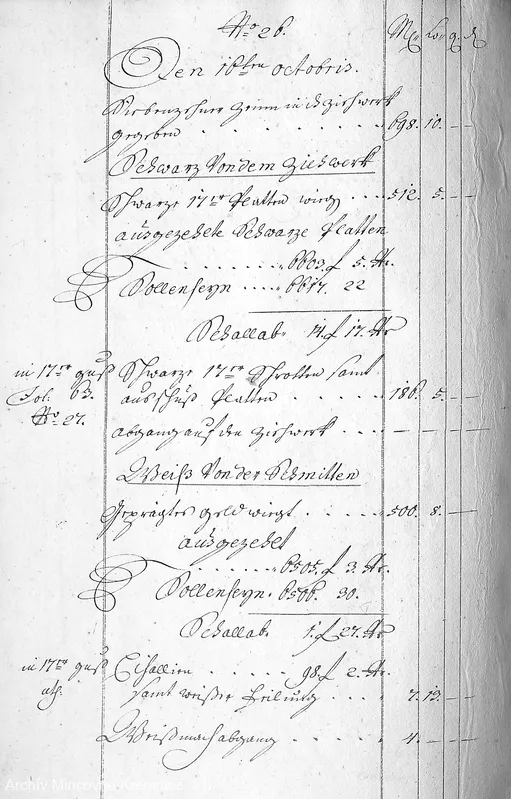 No 26.
Mr Lo q d
Den 16ten octobris.
Siebenzehner Zainn in dz Ziehwerk
gegeben . . . . . 698. 10. — —
Schwarz Von dem Ziehwerk
Schwarze 17ner Platten wiegt . . . 512. 5. — —
ausgezehlte Schwarze Platten
. . . . . . 6603. f 5. Xr.
Sollen seyn . . . . . 6617. 22
Schallab. 14. f 17. Xr
in 17ner guß
Fol: 63.
No 27.
Schwarze 17ner Schrotten samt
ausschuß Platten . . . . 186. 5. —
abgang auf den Ziehwerk . . . — — — —
Weiß Von der Schmitten
Geprägtes geld wiegt . . . . 500. 8. —
ausgezehlt
. . . . . . 6505. f 3. Xr.
Sollen seyn. 6506. 30.
Schallab. 1. f 27. Xr
in 17ner guß
Cisallien . . . . . 98. f 2. Xr
samt weißer Feilung . . . . 7. 13. — —
Weißmach abgang . . . . . 4. — — —
Archív Mincovne Kremnica